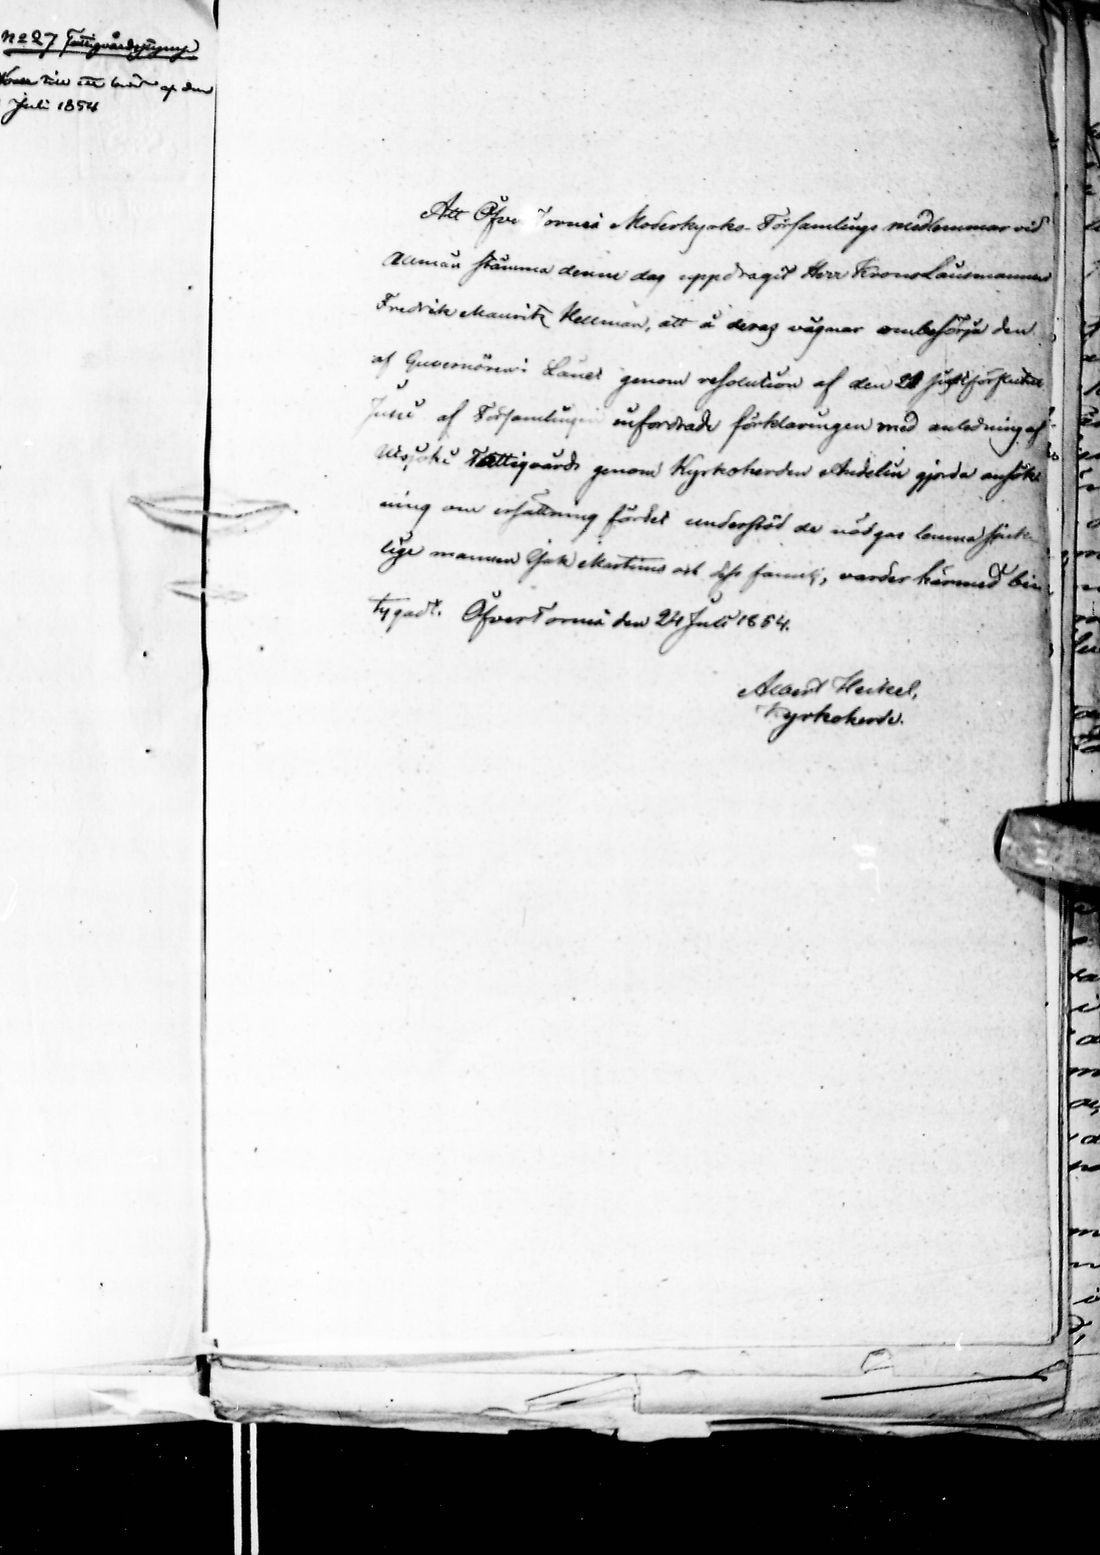 No 27
Juli 1854
Att Öfver Torneå Moderkyrko-Församlings medlemmar vid
Allmän stämma denne dag uppdragit Herr KronoLänsmannen
Fredrik Mauritz Hellman, att å deras vägnar ombesörja den
af Guvernören i Länet genom resolution af den 20 sistförflutne
Junii af Församlingen infordrade förklaringen med anledning af
Utsjoki Fattigvårds genom Kyrkoherden Andelin gjorda ansök-
ning om ersättning för det understöd de nödgas lemna sjuk-
lige mannen Isak Martinus och dess familj, varder härmed be-
tygadt. ÖfverTorneå den 24 Juli 1854.
Albert Heikel,
Kyrkoherde.